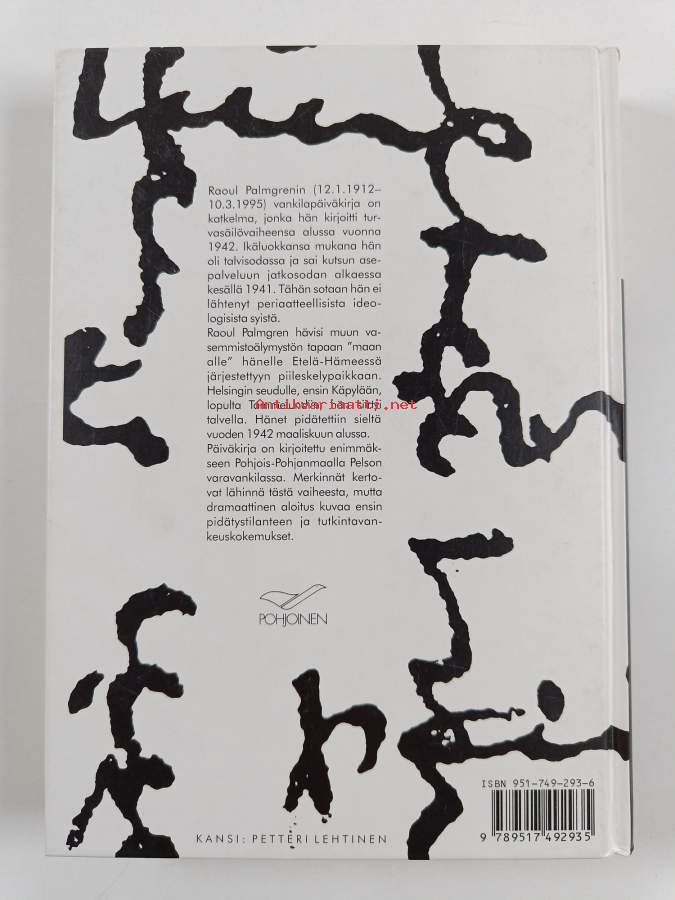 Raoul Palmgrenin (12.1.1912–
10.3.1995) vankilapäiväkirja on
katkelma, jonka hän kirjoitti tur-
vasäilövaiheensa alussa vuonna
1942. Ikäluokkansa mukana hän
oli talvisodassa ja sai kutsun ase-
palveluun jatkosodan alkaessa
kesällä 1941. Tähän sotaan hän ei
lähtenyt periaatteellisista ideo-
logisista syistä.
Raoul Palmgren hävisi muun va-
semmistoälymystön tapaan ”maan
alle” hänelle Etelä-Hämeessä
järjestettyyn piileskelypaikkaan.
Helsingin seudulle, ensin Käpylään,
lopulta hän
Antikvariaatti.net
talvella. Hänet pidätettiin sieltä
vuoden 1942 maaliskuun alussa.
Päiväkirja on kirjoitettu enimmäk-
seen Pohjois-Pohjanmaalla Pelson
varavankilassa. Merkinnät kerto-
vat lähinnä tästä vaiheesta, mutta
dramaattinen aloitus kuvaa ensin
pidätystilanteen ja tutkintavan-
keuskokemukset.
POHJOINEN
KANSI: PETTERI LEHTINEN
ISBN 951-749-293-6
9 789517 492935